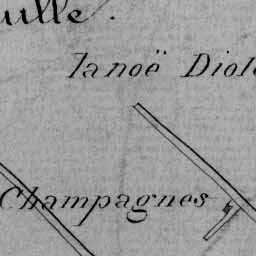 uille.
la noë Diol
Champagnes